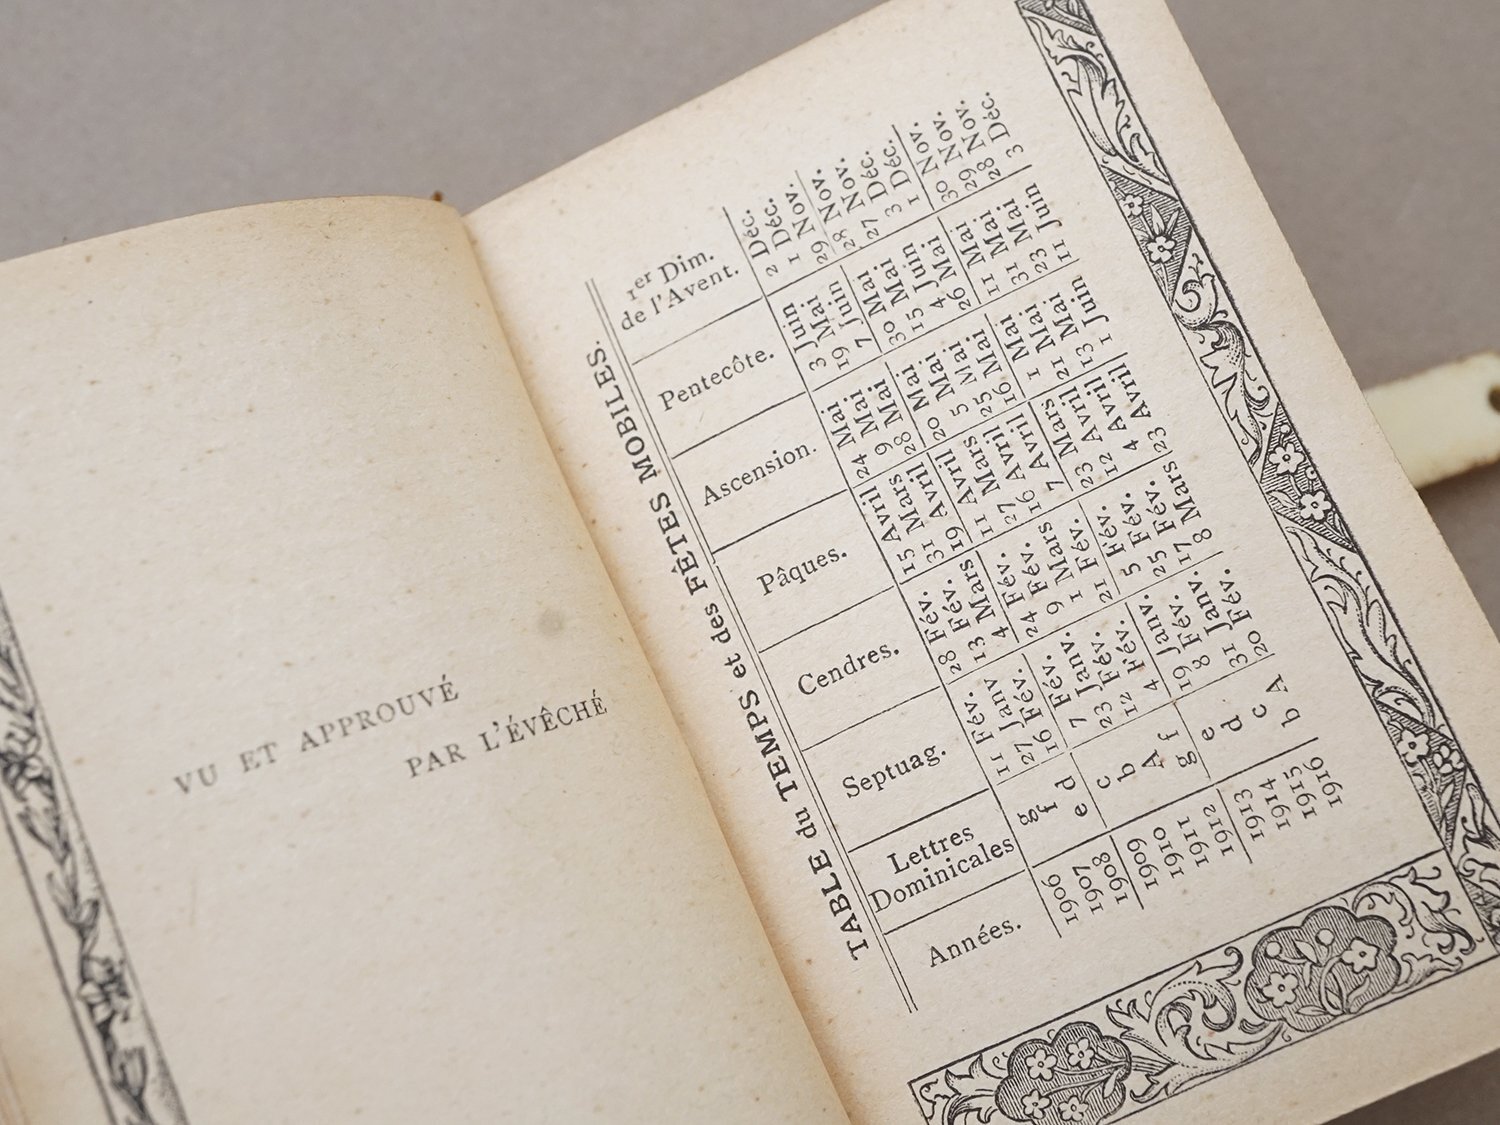 VU ET APPROUVÉ
PAR L'ÉVÊCHÉ
TABLE du TEMPS et des FÊTES MOBILES.
Années. Lettres Dominicales Septuag. Cendres. Pâques. Ascension. Pentecôte. 1er Dim. de l'Avent.
1906 g 11 Fév. 28 Fév. 15 Avril 24 Mai 3 Juin 2 Déc.
1907 f 27 Janv 13 Fév. 31 Mars 9 Mai 19 Mai 1 Déc.
1908 e d 16 Fév. 4 Mars 19 Avril 28 Mai 7 Juin 29 Nov.
1909 c 7 Fév. 24 Fév. 11 Avril 20 Mai 30 Mai 28 Nov.
1910 b 23 Janv. 9 Fév. 27 Mars 5 Mai 15 Mai 27 Nov.
1911 A 12 Fév. 1 Mars 16 Avril 25 Mai 4 Juin 3 Déc.
1912 g f 4 Fév. 21 Fév. 7 Avril 16 Mai 26 Mai 1 Déc.
1913 e 19 Janv. 5 Fév. 23 Mars 1 Mai 11 Mai 30 Nov.
1914 d 8 Fév. 25 Fév. 12 Avril 21 Mai 31 Mai 29 Nov.
1915 c 31 Janv. 17 Fév. 4 Avril 13 Mai 23 Mai 28 Nov.
1916 b A 20 Fév. 8 Mars 23 Avril 1 Juin 11 Juin 3 Déc.